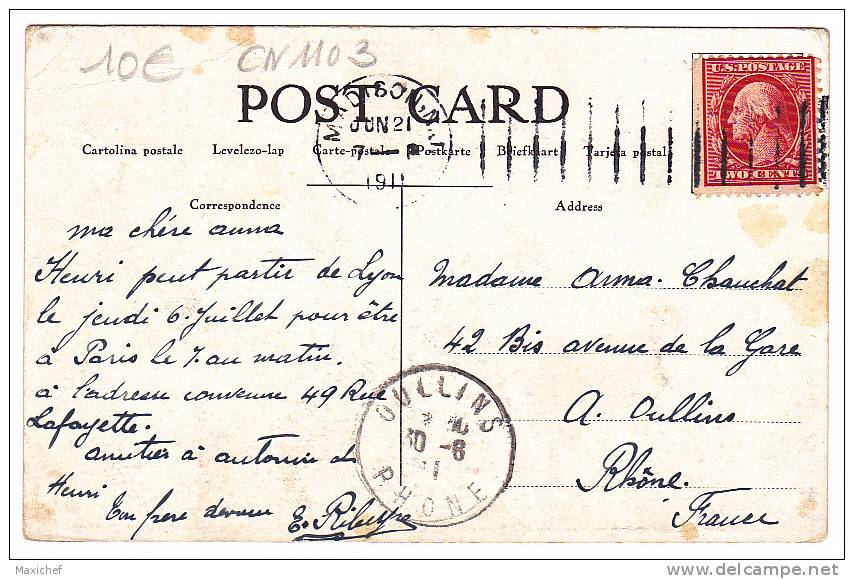 10€ CN1103
POST CARD
U.S. POSTAGE
TWO CENTS
MADISON, N.J.
JUN 21
7 - P
1911
Cartolina postale Levelezo-lap Carte-postale Postkarte Briefkaart Tarjeta postal
Correspondence
Address
ma chère anna
Henri peut partir de Lyon
le jeudi 6. Juillet pour être
à Paris le 7. au matin.
à l'adresse convenue 49 Rue
Lafayette.
amitiés à antonin et
Henri
Ton frère dévoué
Madame Anna. Chauchat
42 Bis avenue de la Gare
A. Oullins
Rhône.
France
OULLINS
30 -6
11
RHONE
Maxichef
delcampe.net